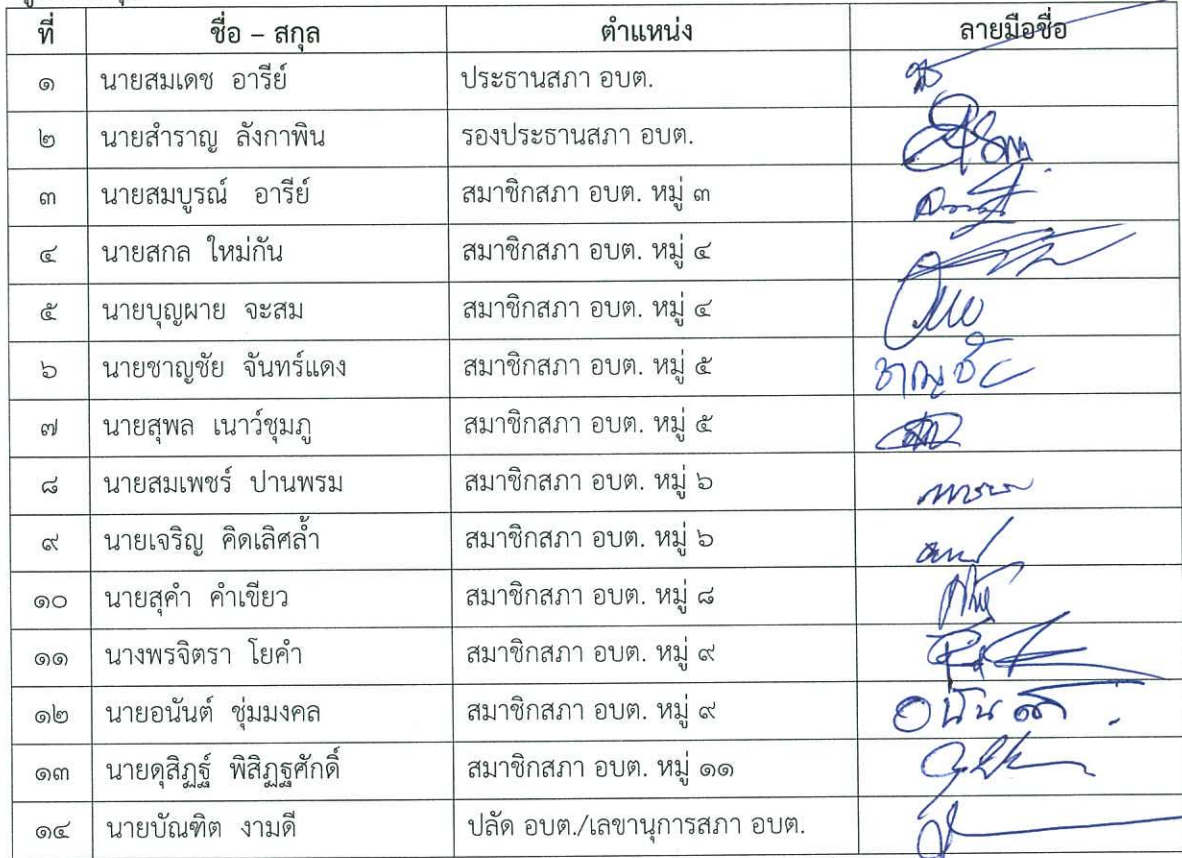 ที่ ชื่อ – สกุล ตำแหน่ง ลายมือชื่อ
๑ นายสมเดช อารีย์ ประธานสภา อบต.
๒ นายสำราญ ลังกาพิน รองประธานสภา อบต.
๓ นายสมบูรณ์ อารีย์ สมาชิกสภา อบต. หมู่ ๓
๔ นายสกล ใหม่กัน สมาชิกสภา อบต. หมู่ ๔
๕ นายบุญผาย จะสม สมาชิกสภา อบต. หมู่ ๔
๖ นายชาญชัย จันทร์แดง สมาชิกสภา อบต. หมู่ ๕
๗ นายสุพล เนาว์ชุมภู สมาชิกสภา อบต. หมู่ ๕
๘ นายสมเพชร์ ปานพรม สมาชิกสภา อบต. หมู่ ๖
๙ นายเจริญ คิดเลิศล้ำ สมาชิกสภา อบต. หมู่ ๖
๑๐ นายสุคำ คำเขียว สมาชิกสภา อบต. หมู่ ๘
๑๑ นางพรจิตรา โยคำ สมาชิกสภา อบต. หมู่ ๙
๑๒ นายอนันต์ ชุ่มมงคล สมาชิกสภา อบต. หมู่ ๙ อนันต์
๑๓ นายดุสิฏฐ์ พิสิฏฐศักดิ์ สมาชิกสภา อบต. หมู่ ๑๑
๑๔ นายบัณฑิต งามดี ปลัด อบต./เลขานุการสภา อบต.